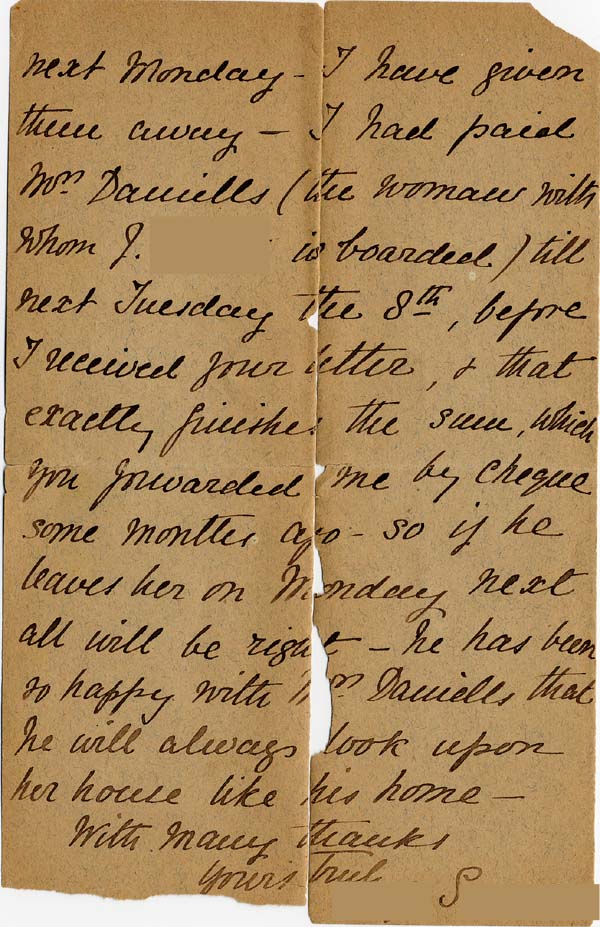 next Monday - I have given
them away - I had paid
Mrs Daniells (the woman with
whom J. is boarded) till
next Tuesday the 8th, before
I received your letter, & that
exactly finishes the sum, which
you forwarded me by cheque
some months ago - so if he
leaves her on Monday next
all will be right - he has been
so happy with Mrs Daniells that
he will always look upon
her house like his home -
With many thanks
Yours
S